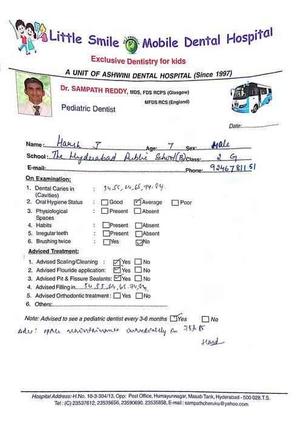 Little Smile Mobile Dental Hospital
Exclusive Dentistry for kids
A UNIT OF ASHWINI DENTAL HOSPITAL (Since 1997)
Dr. SAMPATH REDDY, MDS, FDS RCPS (Glasgow)
MFDS RCS (England)
Pediatric Dentist
Date:
Name: Harsh J Age: 7 Sex: Male
School: The Hyderabad Public School(B) Class: 2 G
E-mail: Phone: 9246781151
On Examination:
1. Dental Caries in : 54, 55, 64, 65, 74, 84
(Cavities)
2. Oral Hygiene Status : Good Average Poor
3. Physiological : Present Absent
Spaces
4. Habits : Present Absent
5. Irregular teeth : Present Absent
6. Brushing twice : Yes No
Advised Treatment:
1. Advised Scaling/Cleaning : Yes No
2. Advised Flouride application: Yes No
3. Advised Pit & Fissure Sealants: Yes No
4. Advised Filling in 54, 55, 64, 65, 74, 84
5. Advised Orthodontic treatment : Yes No
6. Others:
Note: Advised to see a pediatric dentist every 3-6 months Yes No
Adv: space maintainance
Hospital Address: H.No. 10-3-304/13, Opp: Post Office, Humayunnagar, Masab Tank, Hyderabad - 500 028.T.S.
Tel : (C) 23537612, 23535656, 23590690, 23535858, E-mail : sampathcheruku@yahoo.com